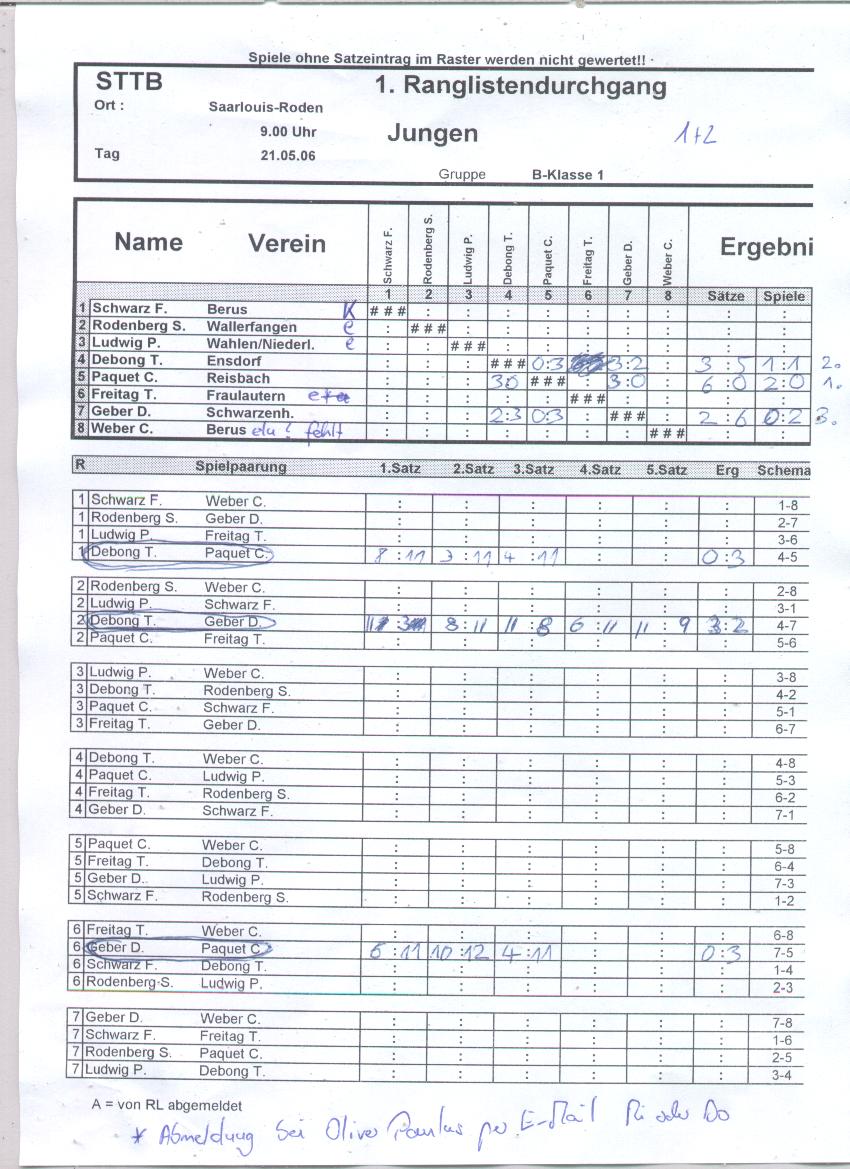 Spiele ohne Satzeintrag im Raster werden nicht gewertet!!
STTB 1. Ranglistendurchgang
Ort : Saarlouis-Roden
9.00 Uhr Jungen 1+2
Tag 21.05.06
Gruppe B-Klasse 1
Name Verein Schwarz F. Rodenberg S. Ludwig P. Debong T. Paquet C. Freitag T. Geber D. Weber C. Ergebni
1 2 3 4 5 6 7 8 Sätze Spiele
1 Schwarz F. Berus K # # # : : : : : : : : :
2 Rodenberg S. Wallerfangen e : # # # : : : : : : : :
3 Ludwig P. Wahlen/Niederl. e : : # # # : : : : : : :
4 Debong T. Ensdorf : : : # # # 0:3 3:2 : 3:5 1:1 2.
5 Paquet C. Reisbach : : : 3:0 # # # : 3:0 : 6:0 2:0 1.
6 Freitag T. Fraulautern : : : : : # # # : : : :
7 Geber D. Schwarzenh. : : : 2:3 0:3 : # # # : 2:6 0:2 3.
8 Weber C. Berus fehlt : : : : : : : # # # : :
R Spielpaarung 1.Satz 2.Satz 3.Satz 4.Satz 5.Satz Erg Schema
1 Schwarz F. Weber C. : : : : : : 1-8
1 Rodenberg S. Geber D. : : : : : : 2-7
1 Ludwig P. Freitag T. : : : : : : 3-6
1 Debong T. Paquet C. 8:11 3:11 4:11 : : 0:3 4-5
2 Rodenberg S. Weber C. : : : : : : 2-8
2 Ludwig P. Schwarz F. : : : : : : 3-1
2 Debong T. Geber D. 11:3 8:11 11:8 6:11 11:9 3:2 4-7
2 Paquet C. Freitag T. : : : : : : 5-6
3 Ludwig P. Weber C. : : : : : : 3-8
3 Debong T. Rodenberg S. : : : : : : 4-2
3 Paquet C. Schwarz F. : : : : : : 5-1
3 Freitag T. Geber D. : : : : : : 6-7
4 Debong T. Weber C. : : : : : : 4-8
4 Paquet C. Ludwig P. : : : : : : 5-3
4 Freitag T. Rodenberg S. : : : : : : 6-2
4 Geber D. Schwarz F. : : : : : : 7-1
5 Paquet C. Weber C. : : : : : : 5-8
5 Freitag T. Debong T. : : : : : : 6-4
5 Geber D. Ludwig P. : : : : : : 7-3
5 Schwarz F. Rodenberg S. : : : : : : 1-2
6 Freitag T. Weber C. : : : : : : 6-8
6 Geber D. Paquet C. 6:11 10:12 4:11 : : 0:3 7-5
6 Schwarz F. Debong T. : : : : : : 1-4
6 Rodenberg S. Ludwig P. : : : : : : 2-3
7 Geber D. Weber C. : : : : : : 7-8
7 Schwarz F. Freitag T. : : : : : : 1-6
7 Rodenberg S. Paquet C. : : : : : : 2-5
7 Ludwig P. Debong T. : : : : : : 3-4
A = von RL abgemeldet
* Abmeldung bei Oliver Paulus per E-Mail Mi oder Do